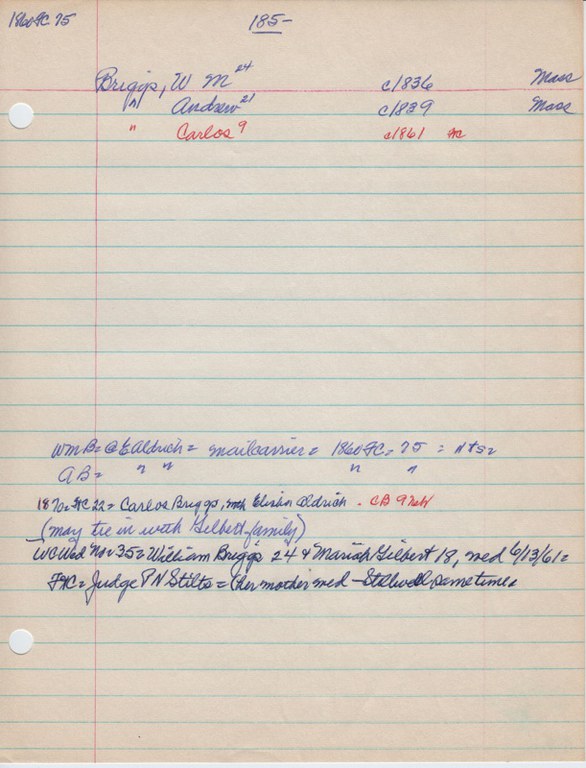 1860 FC 75
185-
Briggs, W M 24 c/1836 Mass
" Andrew 21 c/1839 Mass
" Carlos 9 c/1861 FC
Wm B = @ E Aldrich = mailcarrier = 1860 FC = 75 = Nts =
AB = " " " "
1870 = FC 22 = Carlos Briggs, with Elisha Aldrich - CB 9 Neb
(may tie in with Gilbert family)
WC Wed No = 35 = William Briggs 24 & Mariah Gilbert 18, wed 6/13/61 =
FC = Judge P N Stilts = (her mother wed - Stillwell sometime.